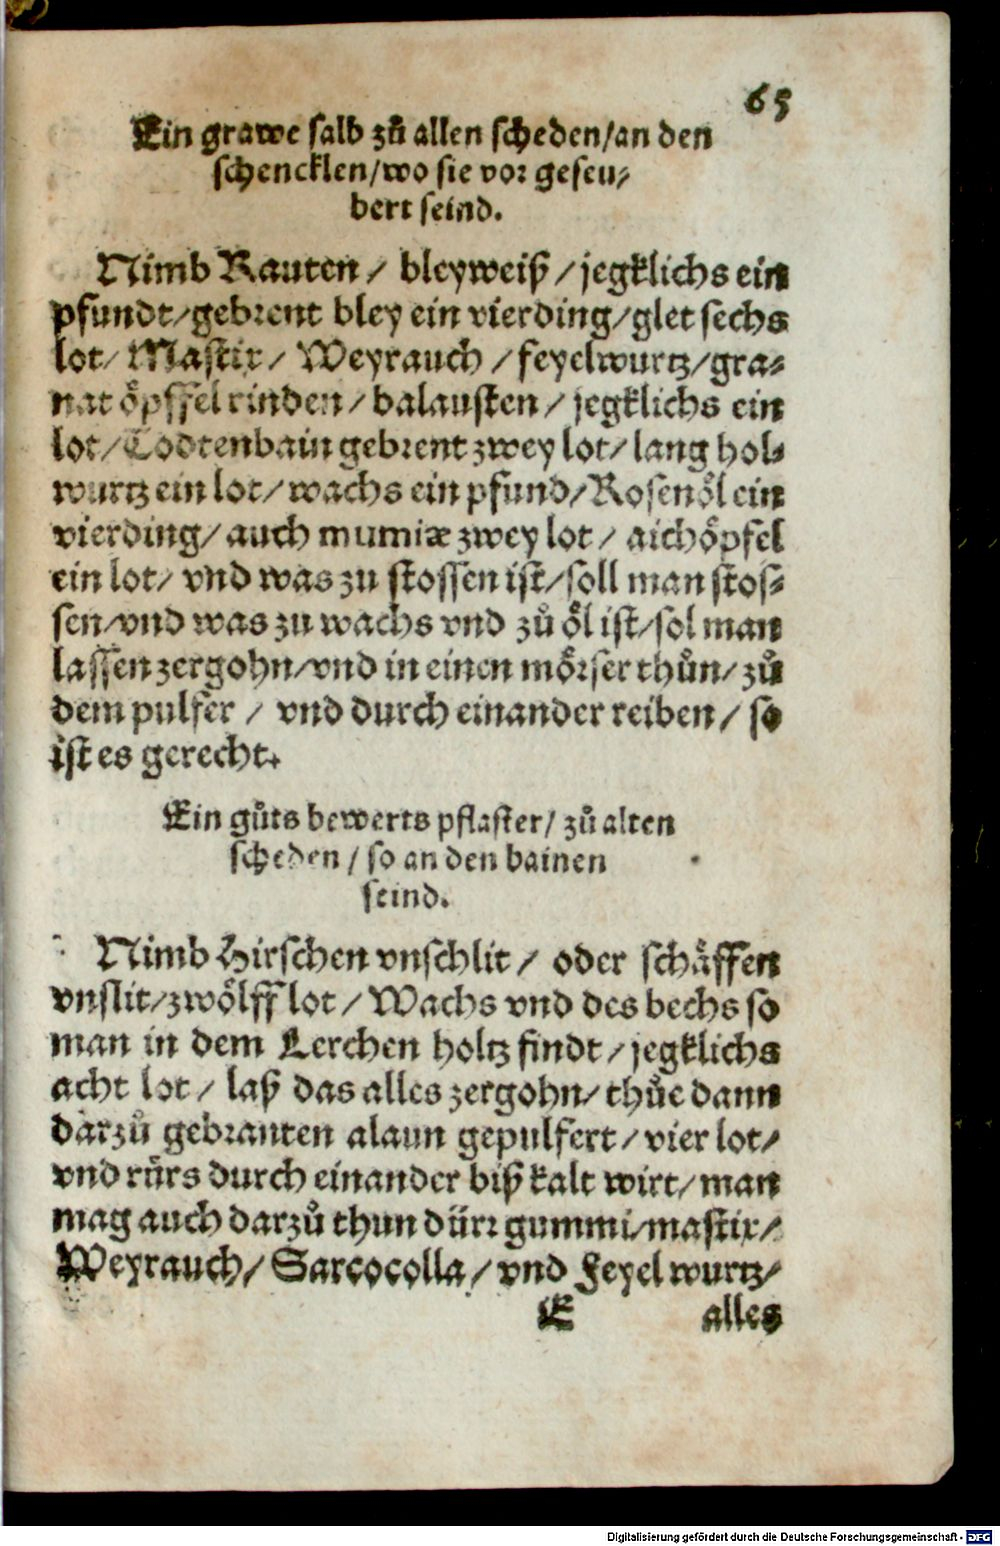 65
Ein grawe salb zů allen scheden/an den
schencklen/wo sie vor geseu⸗
bert seind.
Nimb Rauten/ bleyweiß/jegklichs ein
pfundt/gebrent bley ein vierding/glet sechs
lot/ Mastix/ Weyrauch/feyelwurtz/gra⸗
nat öpffel rinden/balausten/jegklichs ein
lot/Todtenbain gebrent zwey lot/lang hol⸗
wurtz ein lot/wachs ein pfund/Rosenöl ein
vierding/auch mumiæ zwey lot/ aichöpfel
ein lot/ vnd was zu stossen ist/soll man stos⸗
sen/vnd was zu wachs vnd zů öl ist/sol man
lassen zergohn/vnd in einen mörser thůn/zů
dem pulfer/ vnd durch einander reiben/ so
ist es gerecht.
Ein gůts bewerts pflaster/ zů alten
scheden/so an den bainen
seind.
Nimb Hirschen vnschlit/ oder schäffen
vnslit/zwölff lot/Wachs vnd des bechs so
man in dem Lerchen holtz findt/jegklichs
acht lot/ laß das alles zergohn/thůe dann
darzů gebranten alaun gepulfert/vier lot/
vnd rürs durch einander biß kalt wirt/man
mag auch darzů thun dürr gummi/mastix/
Weyrauch/Sarcocolla/vnd Feyel wurtz/
E alles
Digitalisierung gefördert durch die Deutsche Forschungsgemeinschaft - DFG